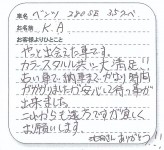 車名 ベンツ 220SE 3.5クーペ
お名前 K.A
お客様よりひとこと
やっと出会えた車です。
カラースタイル共に大満足!!
古い車で、納車までかなり時間
がかかりましたが安心して待つ事が
出来ました。
これからも遠方ですが宜しく
お願いします。
さんありがとう!!